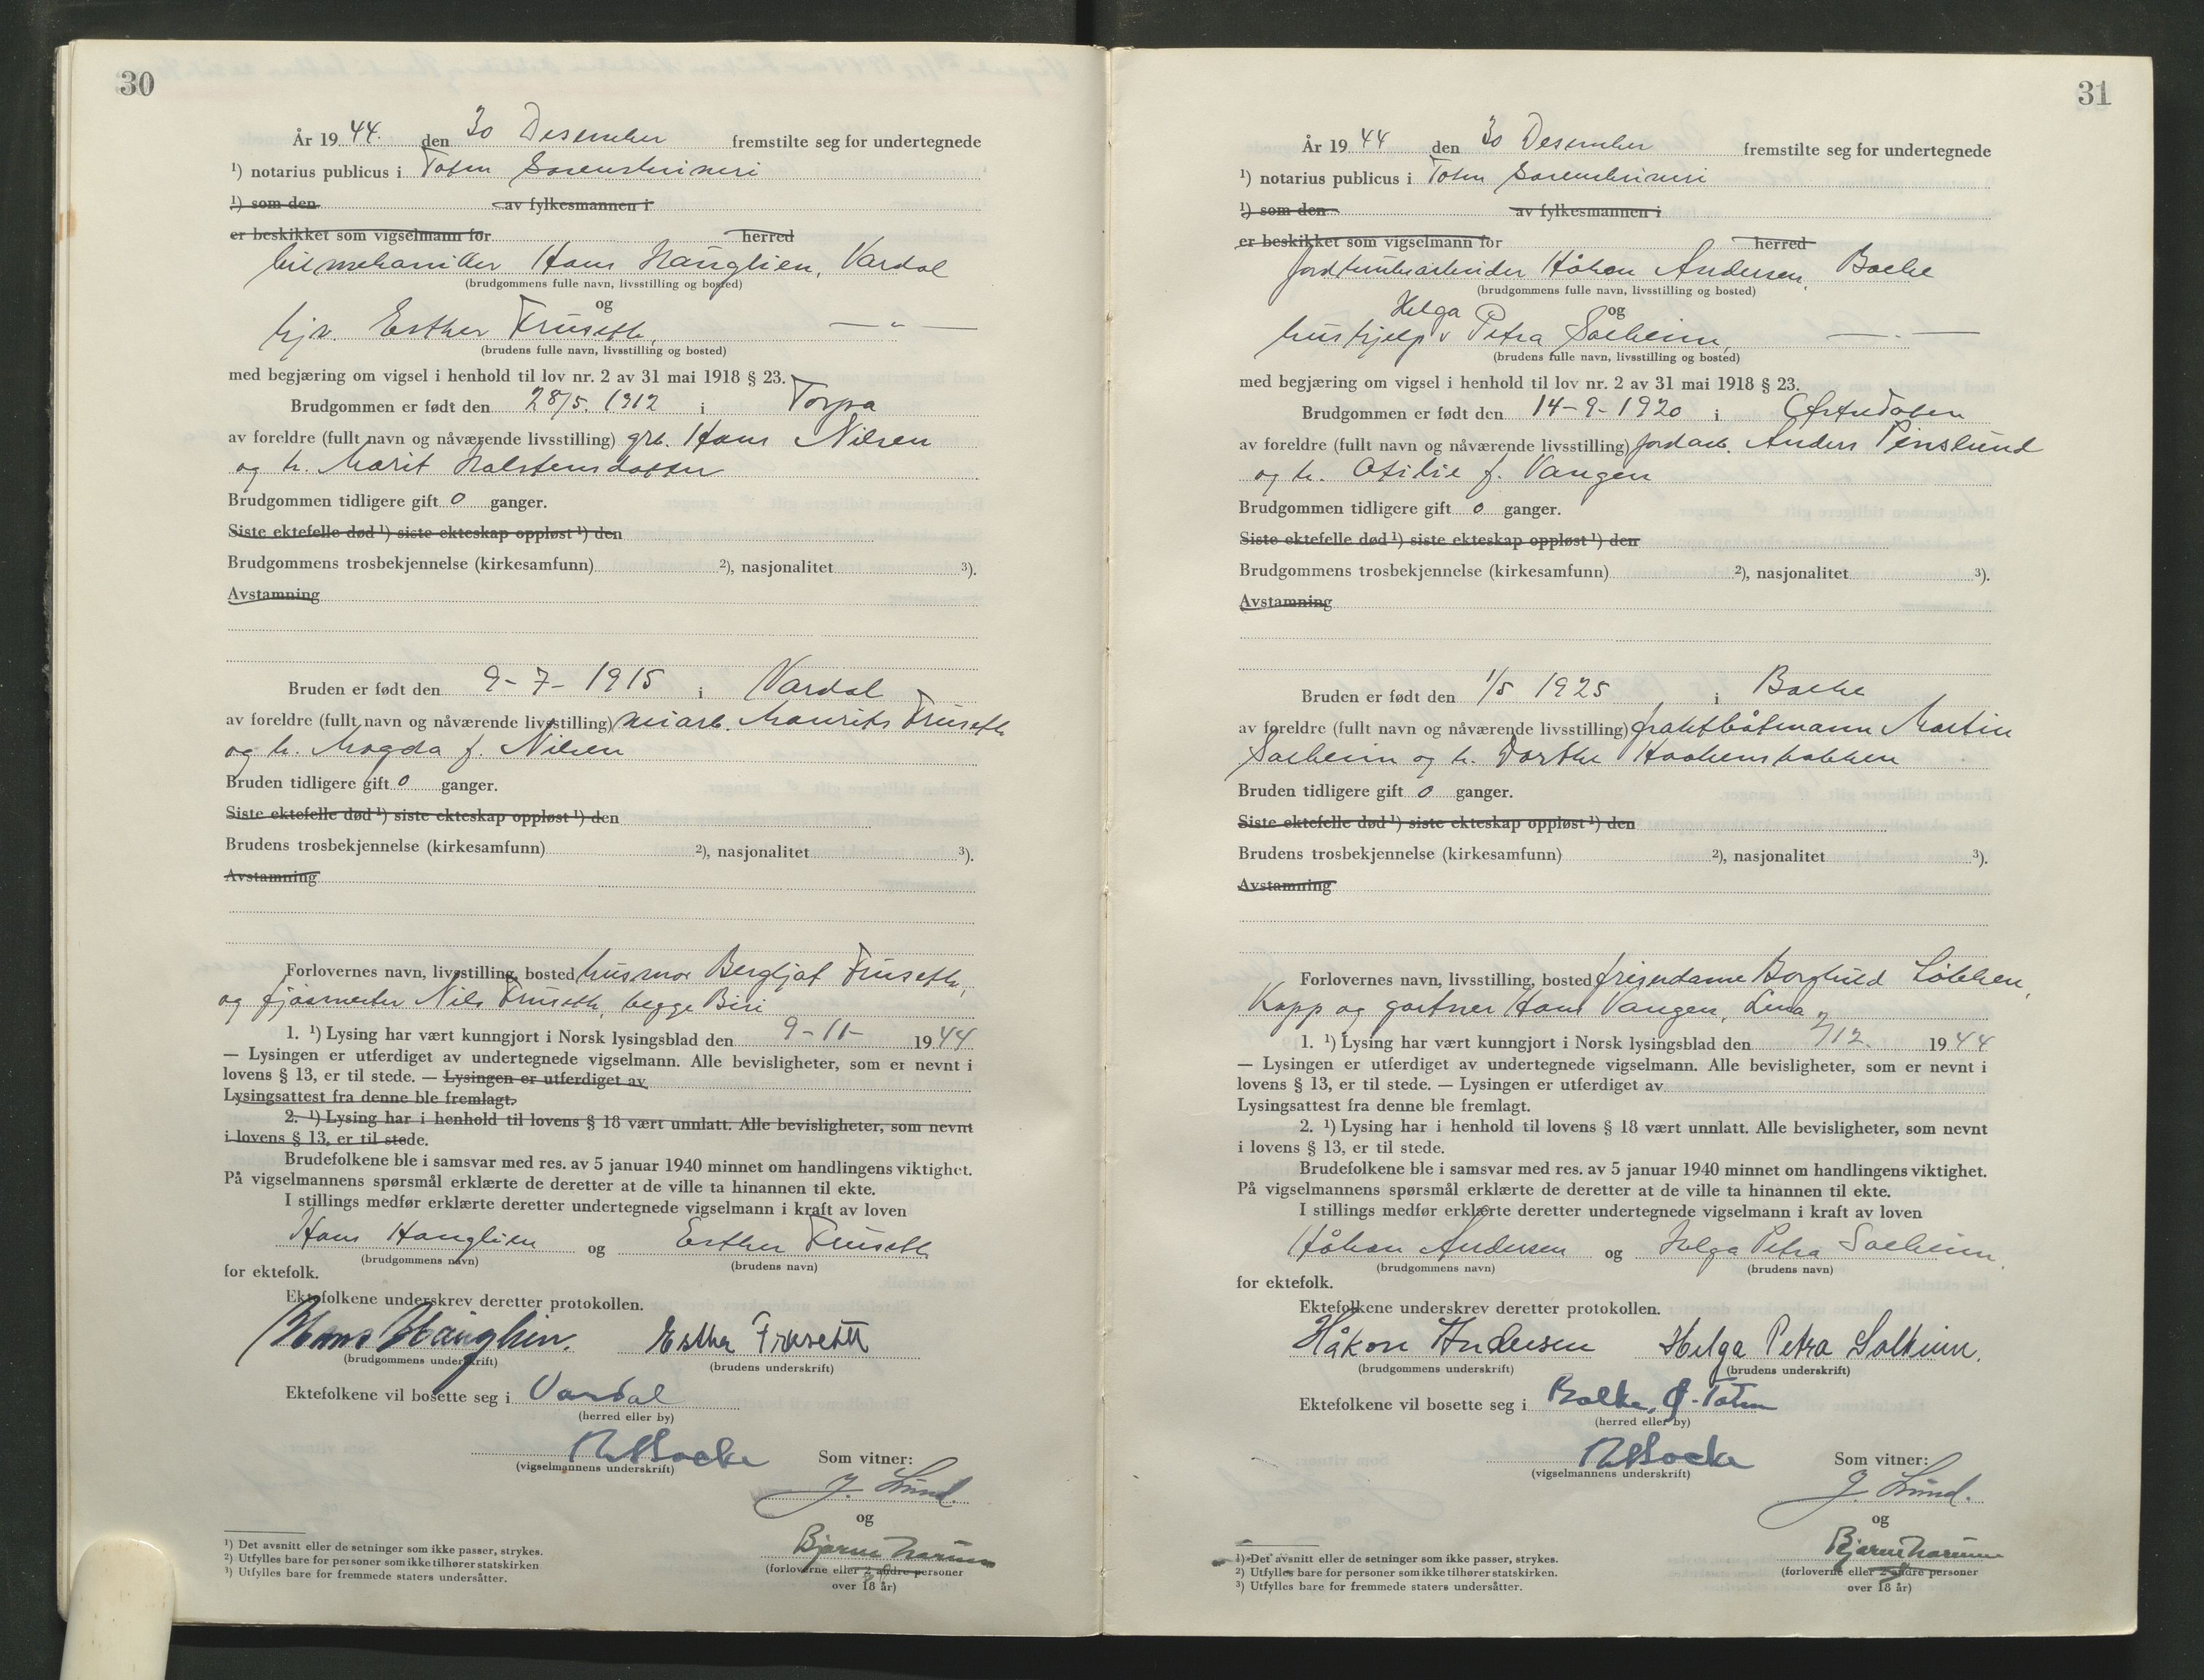 30
År 1944. den 30 Desember fremstilte seg for undertegnede
¹) notarius publicus i Toten Sorenskriveri
¹) som den av fylkesmannen i
er beskikket som vigselmann for herred
bilmekaniker Hans Hauglien, Vardal
(brudgommens fulle navn, livsstilling og bosted)
og
hjv. Esther Fruseth, — " —
(brudens fulle navn, livsstilling og bosted)
med begjæring om vigsel i henhold til lov nr. 2 av 31 mai 1918 § 23.
Brudgommen er født den 28/5. 1912 i Torpa
av foreldre (fullt navn og nåværende livsstilling) grb. Hans Nilsen
og h. Marit Halstensdatter
Brudgommen tidligere gift 0 ganger.
Siste ektefelle død ¹) siste ekteskap oppløst ¹) den
Brudgommens trosbekjennelse (kirkesamfunn) ²), nasjonalitet ³).
Avstamning
Bruden er født den 9-7-1915 i Vardal
av foreldre (fullt navn og nåværende livsstilling) Maurits Fruseth
og h. Magda f. Nilsen
Bruden tidligere gift 0 ganger.
Siste ektefelle død ¹) siste ekteskap oppløst ¹) den
Brudens trosbekjennelse (kirkesamfunn) ²), nasjonalitet ³).
Avstamning
Forlovernes navn, livsstilling, bosted husmor Bergljot Fruseth,
og fjøsmester Nils Fruseth, begge Biri
1. ¹) Lysing har vært kunngjort i Norsk lysingsblad den 9-11- 1944
— Lysingen er utferdiget av undertegnede vigselmann. Alle bevisligheter, som er nevnt i
lovens § 13, er til stede. — Lysingen er utferdiget av
Lysingsattest fra denne ble fremlagt.
2. ¹) Lysing har i henhold til lovens § 18 vært unnlatt. Alle bevisligheter, som nevnt
i lovens § 13, er til stede.
Brudefolkene ble i samsvar med res. av 5 januar 1940 minnet om handlingens viktighet.
På vigselmannens spørsmål erklærte de deretter at de ville ta hinannen til ekte.
I stillings medfør erklærte deretter undertegnede vigselmann i kraft av loven
Hans Hauglien og Esther Fruseth
(brudgommens navn) (brudens navn)
for ektefolk.
Ektefolkene underskrev deretter protokollen.
Hans Hauglien. Esther Fruseth
(brudgommens underskrift) (brudens underskrift)
Ektefolkene vil bosette seg i Vardal
(herred eller by)
(vigselmannens underskrift) Som vitner:
J. Lund.
og
Bjarne
(forloverne eller 2 andre personer
over 18 år)
¹) Det avsnitt eller de setninger som ikke passer, strykes.
²) Utfylles bare for personer som ikke tilhører statskirken
³) Utfylles bare for fremmede staters undersåtter.
31
År 1944 den 30 Desember fremstilte seg for undertegnede
¹) notarius publicus i Toten Sorenskriveri
¹) som den av fylkesmannen i
er beskikket som vigselmann for herred
jordbruksarbeider Håkon Andersen, Balke
(brudgommens fulle navn, livsstilling og bosted)
Helga og
hushjelp v Petra Solheim, — " —
(brudens fulle navn, livsstilling og bosted)
med begjæring om vigsel i henhold til lov nr. 2 av 31 mai 1918 § 23.
Brudgommen er født den 14-9-1920 i Østre Toten
av foreldre (fullt navn og nåværende livsstilling) jordarb. Anders Pinslund
og h. Otilie f. Vangen
Brudgommen tidligere gift 0 ganger.
Siste ektefelle død ¹) siste ekteskap oppløst ¹) den
Brudgommens trosbekjennelse (kirkesamfunn) ²), nasjonalitet ³).
Avstamning
Bruden er født den 1/5 1925 i Balke
av foreldre (fullt navn og nåværende livsstilling) fraktbåtmann Martin
Solheim og h. Dorthe Haakenstadbakken
Bruden tidligere gift 0 ganger.
Siste ektefelle død ¹) siste ekteskap oppløst ¹) den
Brudens trosbekjennelse (kirkesamfunn) ²), nasjonalitet ³).
Avstamning
Forlovernes navn, livsstilling, bosted frisørdame Borghild Løkken,
Kapp og gartner Hans Vangen, Lena
1. ¹) Lysing har vært kunngjort i Norsk lysingsblad den 2/12. 1944
— Lysingen er utferdiget av undertegnede vigselmann. Alle bevisligheter, som er nevnt i
lovens § 13, er til stede. — Lysingen er utferdiget av
Lysingsattest fra denne ble fremlagt.
2. ¹) Lysing har i henhold til lovens § 18 vært unnlatt. Alle bevisligheter, som nevnt
i lovens § 13, er til stede.
Brudefolkene ble i samsvar med res. av 5 januar 1940 minnet om handlingens viktighet.
På vigselmannens spørsmål erklærte de deretter at de ville ta hinannen til ekte.
I stillings medfør erklærte deretter undertegnede vigselmann i kraft av loven
Håkon Andersen og Helga Petra Solheim
(brudgommens navn) (brudens navn)
for ektefolk.
Ektefolkene underskrev deretter protokollen.
Håkon Andersen Helga Petra Solheim.
(brudgommens underskrift) (brudens underskrift)
Ektefolkene vil bosette seg i Balke, Ø-Toten
(herred eller by)
(vigselmannens underskrift) Som vitner:
J. Lund.
og
Bjarne
(forloverne eller 2 andre personer
over 18 år)
¹) Det avsnitt eller de setninger som ikke passer, strykes.
²) Utfylles bare for personer som ikke tilhører statskirken.
³) Utfylles bare for fremmede staters undersåtter.